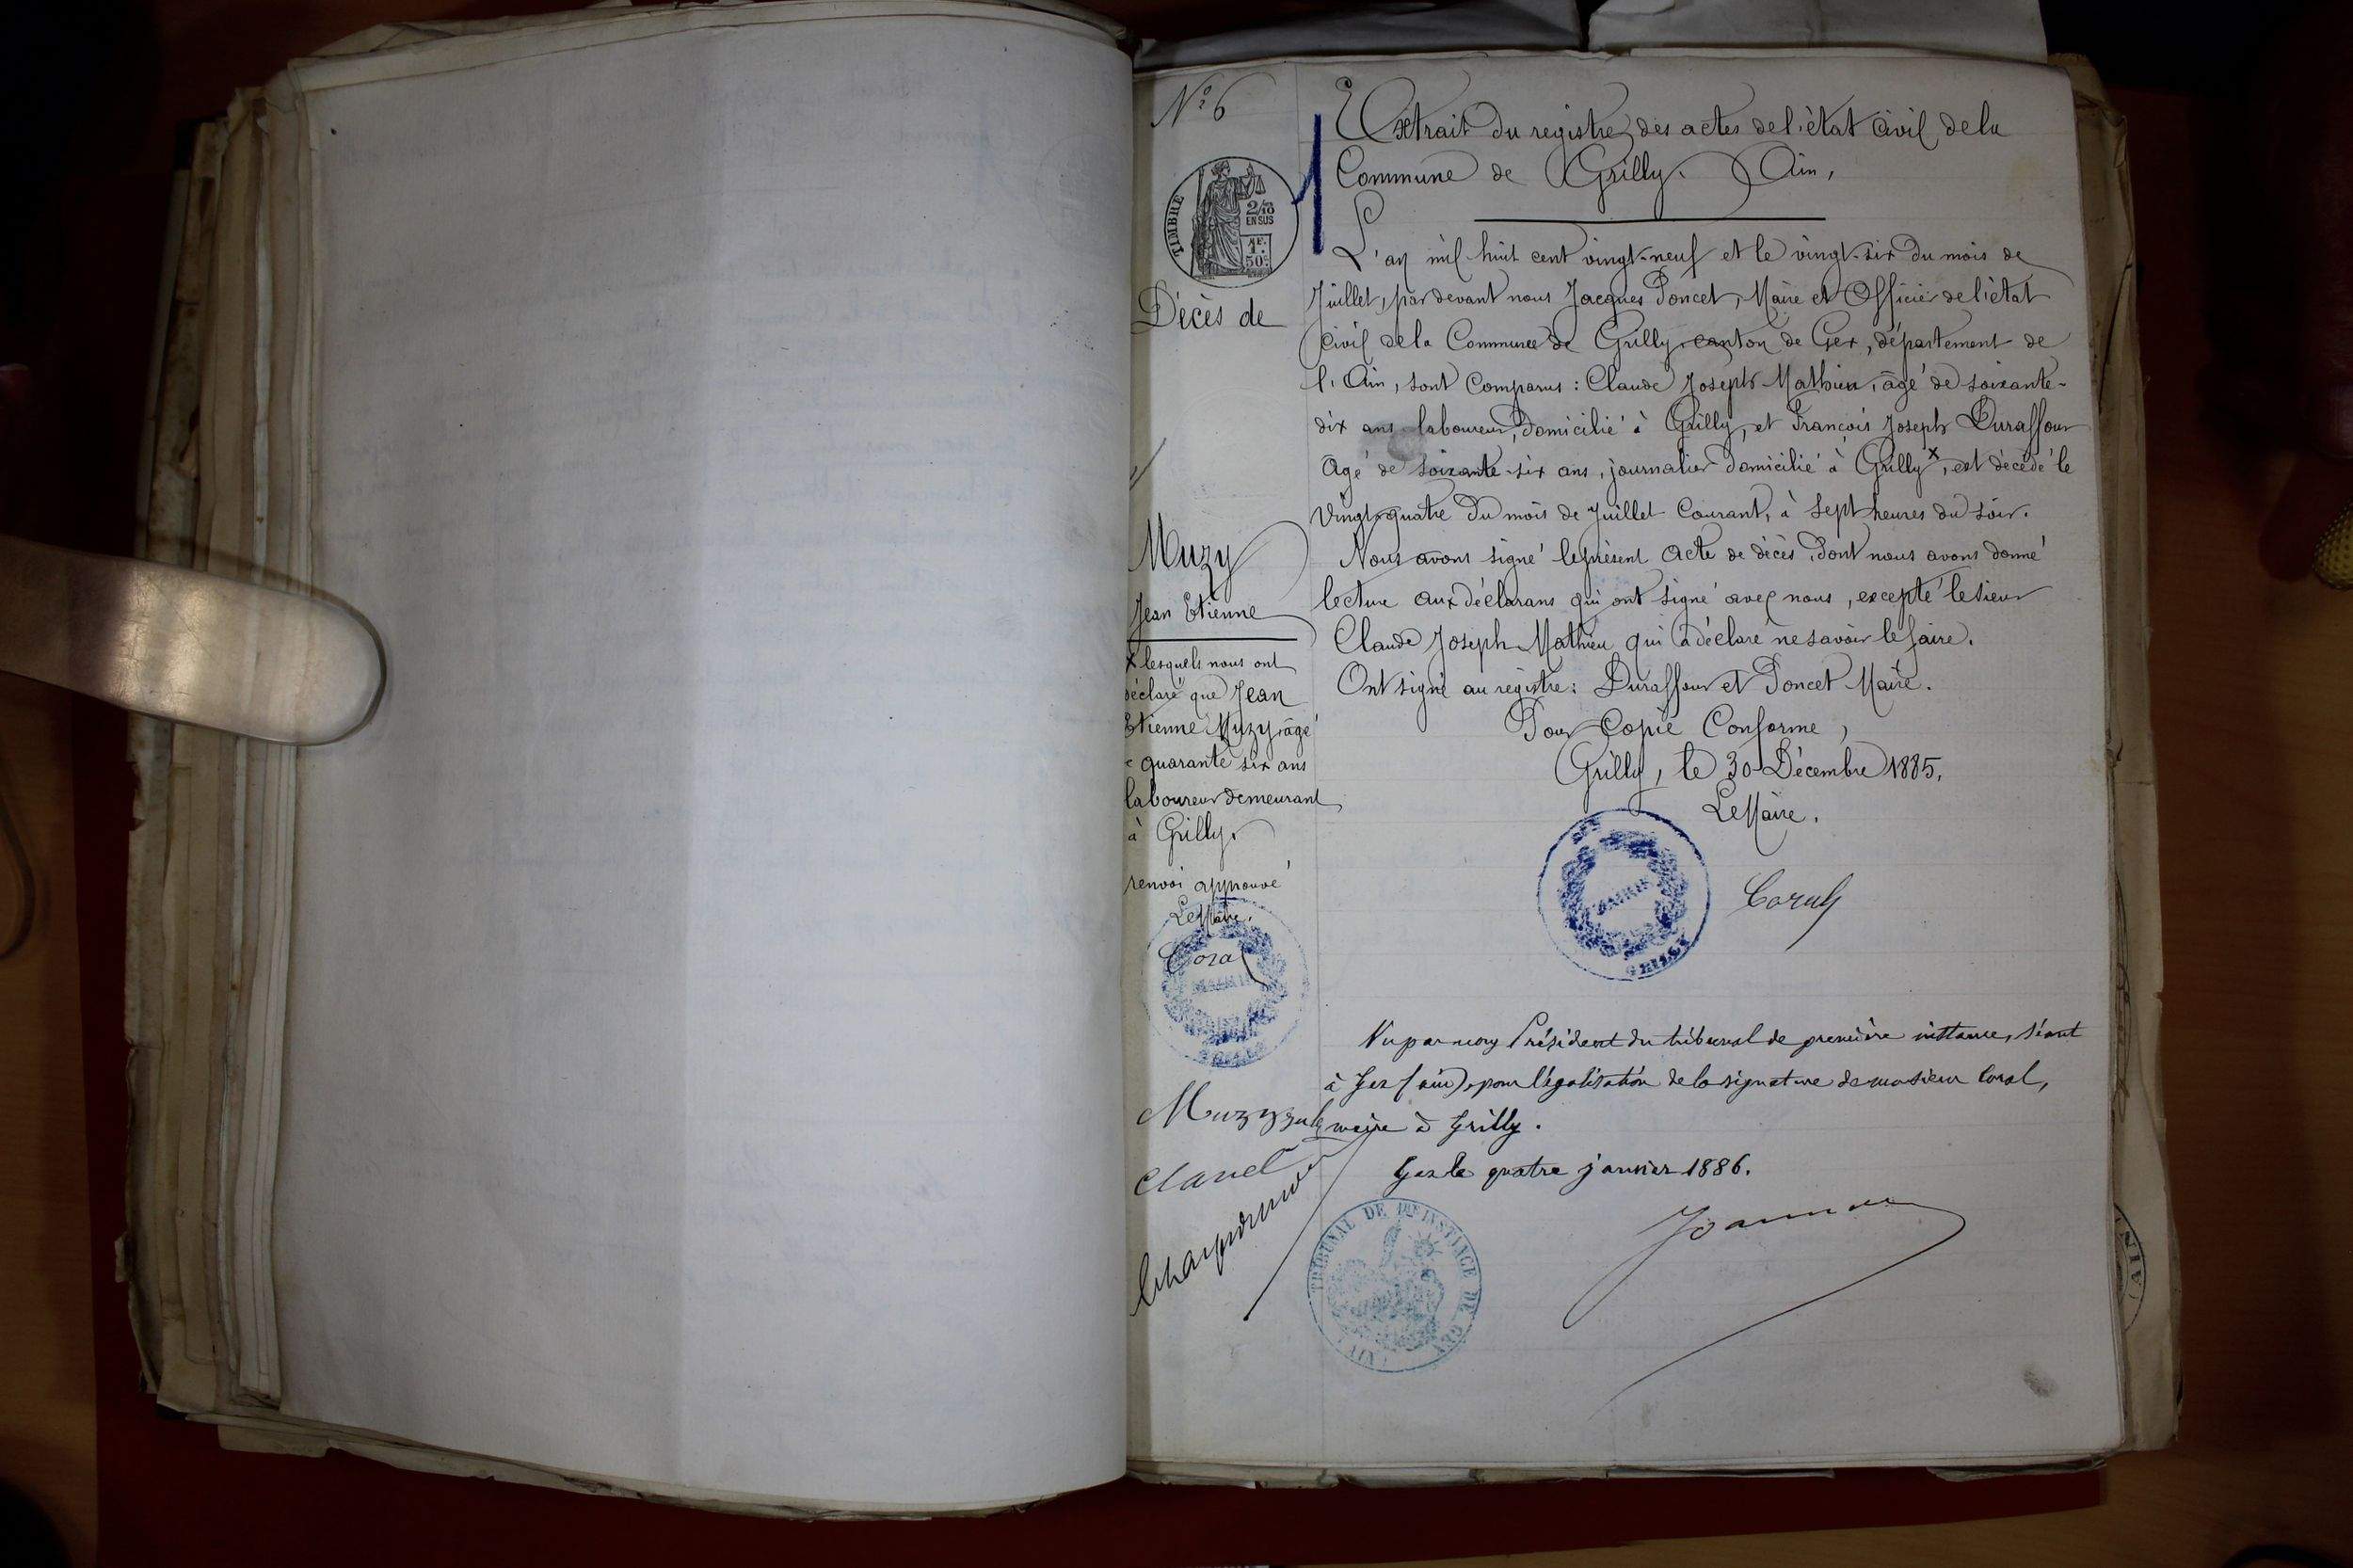 N° 6
TIMBRE
2/10
EN SUS
1F.
50c.
Décès de
Muzy
Jean Etienne
x lesquels nous ont
déclaré que Jean
Etienne Muzy, âgé
quarante six ans
laboureur demeurant
à Grilly.
renvoi approuvé
Le Maire.
Coral
Muzy
Clavel
Extrait du registre des actes de l'état Civil de la
Commune de Grilly. Ain,
L'an mil huit cent vingt-neuf et le vingt-six du mois de
Juillet, par devant nous Jacques Poncet, Maire et Officier de l'état
Civil de la Commune de Grilly, canton de Gex, département de
l'Ain, sont Comparus : Claude Joseph Mathieu, âgé de soixante-
dix ans laboureur, domicilié à Grilly, et François Joseph Duraffour
âgé de soixante-six ans, journalier domicilié à Grilly x, est décédé le
Vingt-quatre du mois de Juillet Courant, à Sept heures du soir.
Nous avons signé le présent acte de décès, dont nous avons donné
lecture aux déclarans qui ont signé avec nous, excepté le sieur
Claude Joseph Mathieu qui a déclaré ne savoir le faire.
Ont signé au registre : Duraffour et Poncet Maire.
Pour Copie Conforme,
Grilly, le 30 Décembre 1885.
Le Maire.
MAIRIE
GRILLY
Coral
Vu par nous Président du tribunal de première instance, séant
à Gex (ain), pour légalisation de la signature de monsieur Coral,
maire à Grilly.
Gex le quatre janvier 1886.
TRIBUNAL DE 1ERE INSTANCE DE GEX
(AIN)